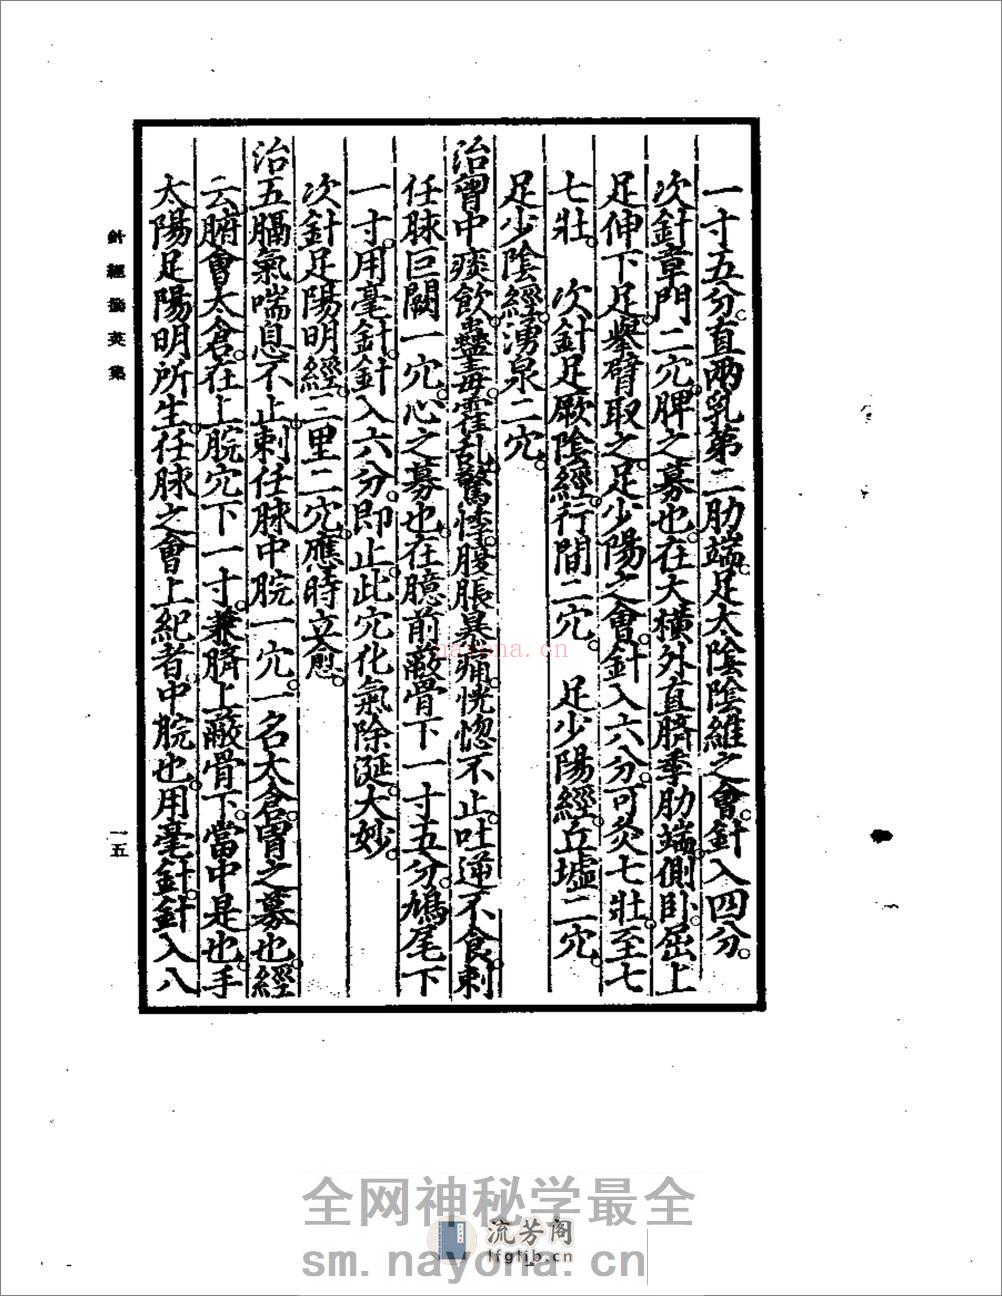 一寸五分。直兩乳第二肋端。足太陰陰維之會。針入四分。
次針章門二穴。脾之募也。在大橫外直臍季肋端。側卧。屈上
足伸下足。舉臂取之。足少陽之會。針入六分。可灸七壯。至七
七壯。　次針足厥陰經。行間二穴。　足少陽經。丘墟二穴。
足少陰經。湧泉二穴。
治胷中痰飲。蠱毒。霍亂。驚悸。腹脹暴痛。恍惚不止。吐逆不食。刺
任脉巨闕一穴。心之募也。在臆前蔽骨下一寸五分。鳩尾下
一寸。用毫針。針入六分。即止。此穴化氣除涎。大妙。
次針足陽明經。三里二穴。應時立愈。
治五膈氣喘息不止。刺任脉中脘一穴。一名太倉。胃之募也。經
云。腑會太倉。在上脘穴下一寸。兼臍上蔽骨下。當中是也。手
太陽足陽明所生。任脉之會。上紀者。中脘也。用毫針。針入八
針經節英集
一五
nayona.cn
全网神秘学最全
流芳阁
lfglib.cn
sm.nayona.cn